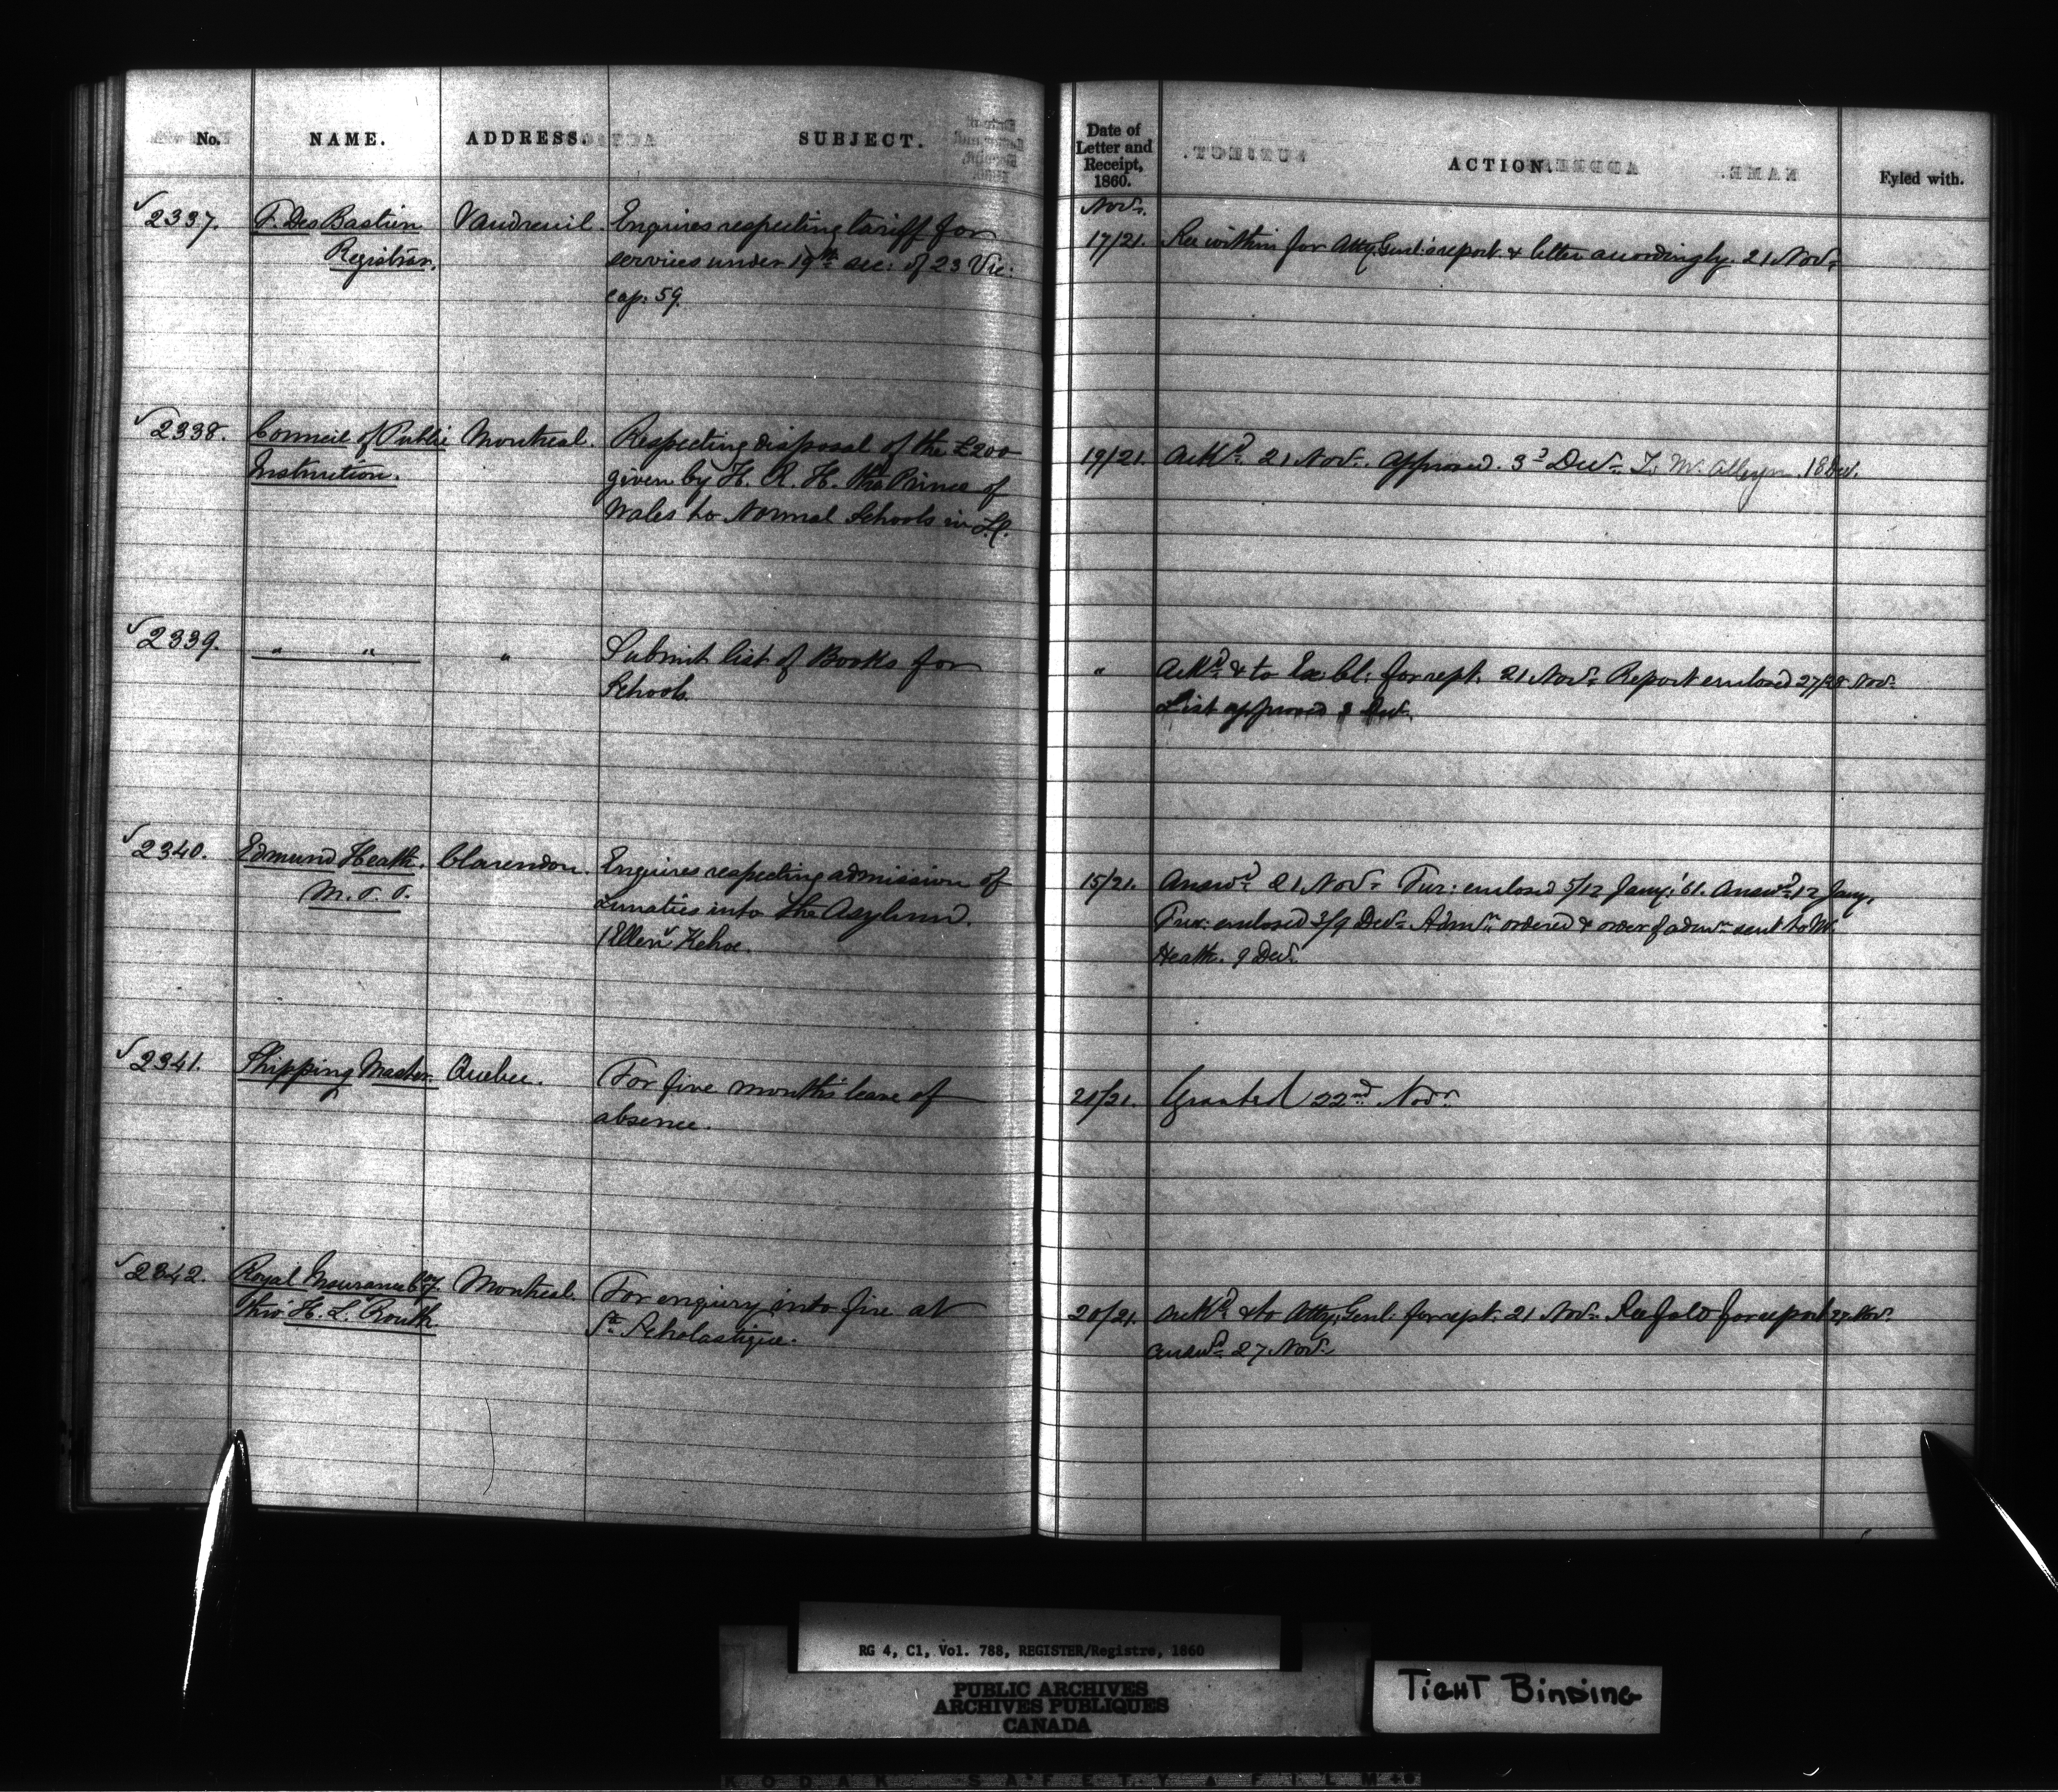 No. NAME. ADDRESS. SUBJECT.
Date of
Letter and
Receipt,
1860.
ACTION.
Fyled with.
2337. F. Des Bastien Vaudreuil. Enquires respecting tariff for
Registrar. services under 19th sec: of 23 Vic:
cap: 59.
Novr.
17/21. See within for Atty. Genl.'s report & letter accordingly. 21 Novr.
2338. Council of Public Montreal. Respecting disposal of the £200
Instruction. given by H. R. H. the Prince of
Wales to Normal Schools in L.C.
19/21. Ackd. 21 Novr. Approved. 3d Decr. 18 Decr.
2339. " " " Submit list of Books for
Schools.
" Ackd. & to Ex: Cl: for rept. 21 Novr. Report enclosed 27/28 Novr.
List approved Decr.
2340. Edmund Heath. Clarendon. Enquires respecting admission of
M.P.P. Lunatics into the Asylum.
Ellen Kehoe.
15/21. Answd. 21 Novr. Fur: enclosed 5/12 Jany: '61. Answd. 12 Jany.
Fur: enclosed 3/9 Decr. Admn. ordered & order of admn. sent to Mr.
Heath. 9 Decr.
2341. Shipping Master. Quebec. For five months' leave of
absence.
21/21. Granted 22nd Novr.
2342. Royal Insurance Coy. Montreal. For enquiry into fire at
thro' H. L. Routh. Ste. Scholastique.
20/21. Ackd. & to Atty. Genl. for rept. 21 Novr. See fold for report 27 Novr.
Answd. 27 Novr.
RG 4, C1, Vol. 788, REGISTER/Registre, 1860
PUBLIC ARCHIVES
ARCHIVES PUBLIQUES
CANADA
TIGHT BINDING
KODAK SAFETY FILM